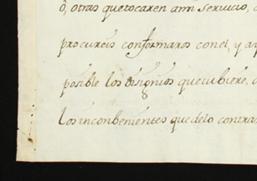 ò, otras que tocaren a mi servicio,
procureis conformaros con el, y a
posible los designios que tubiere,
Los inconbenientes que delo contra